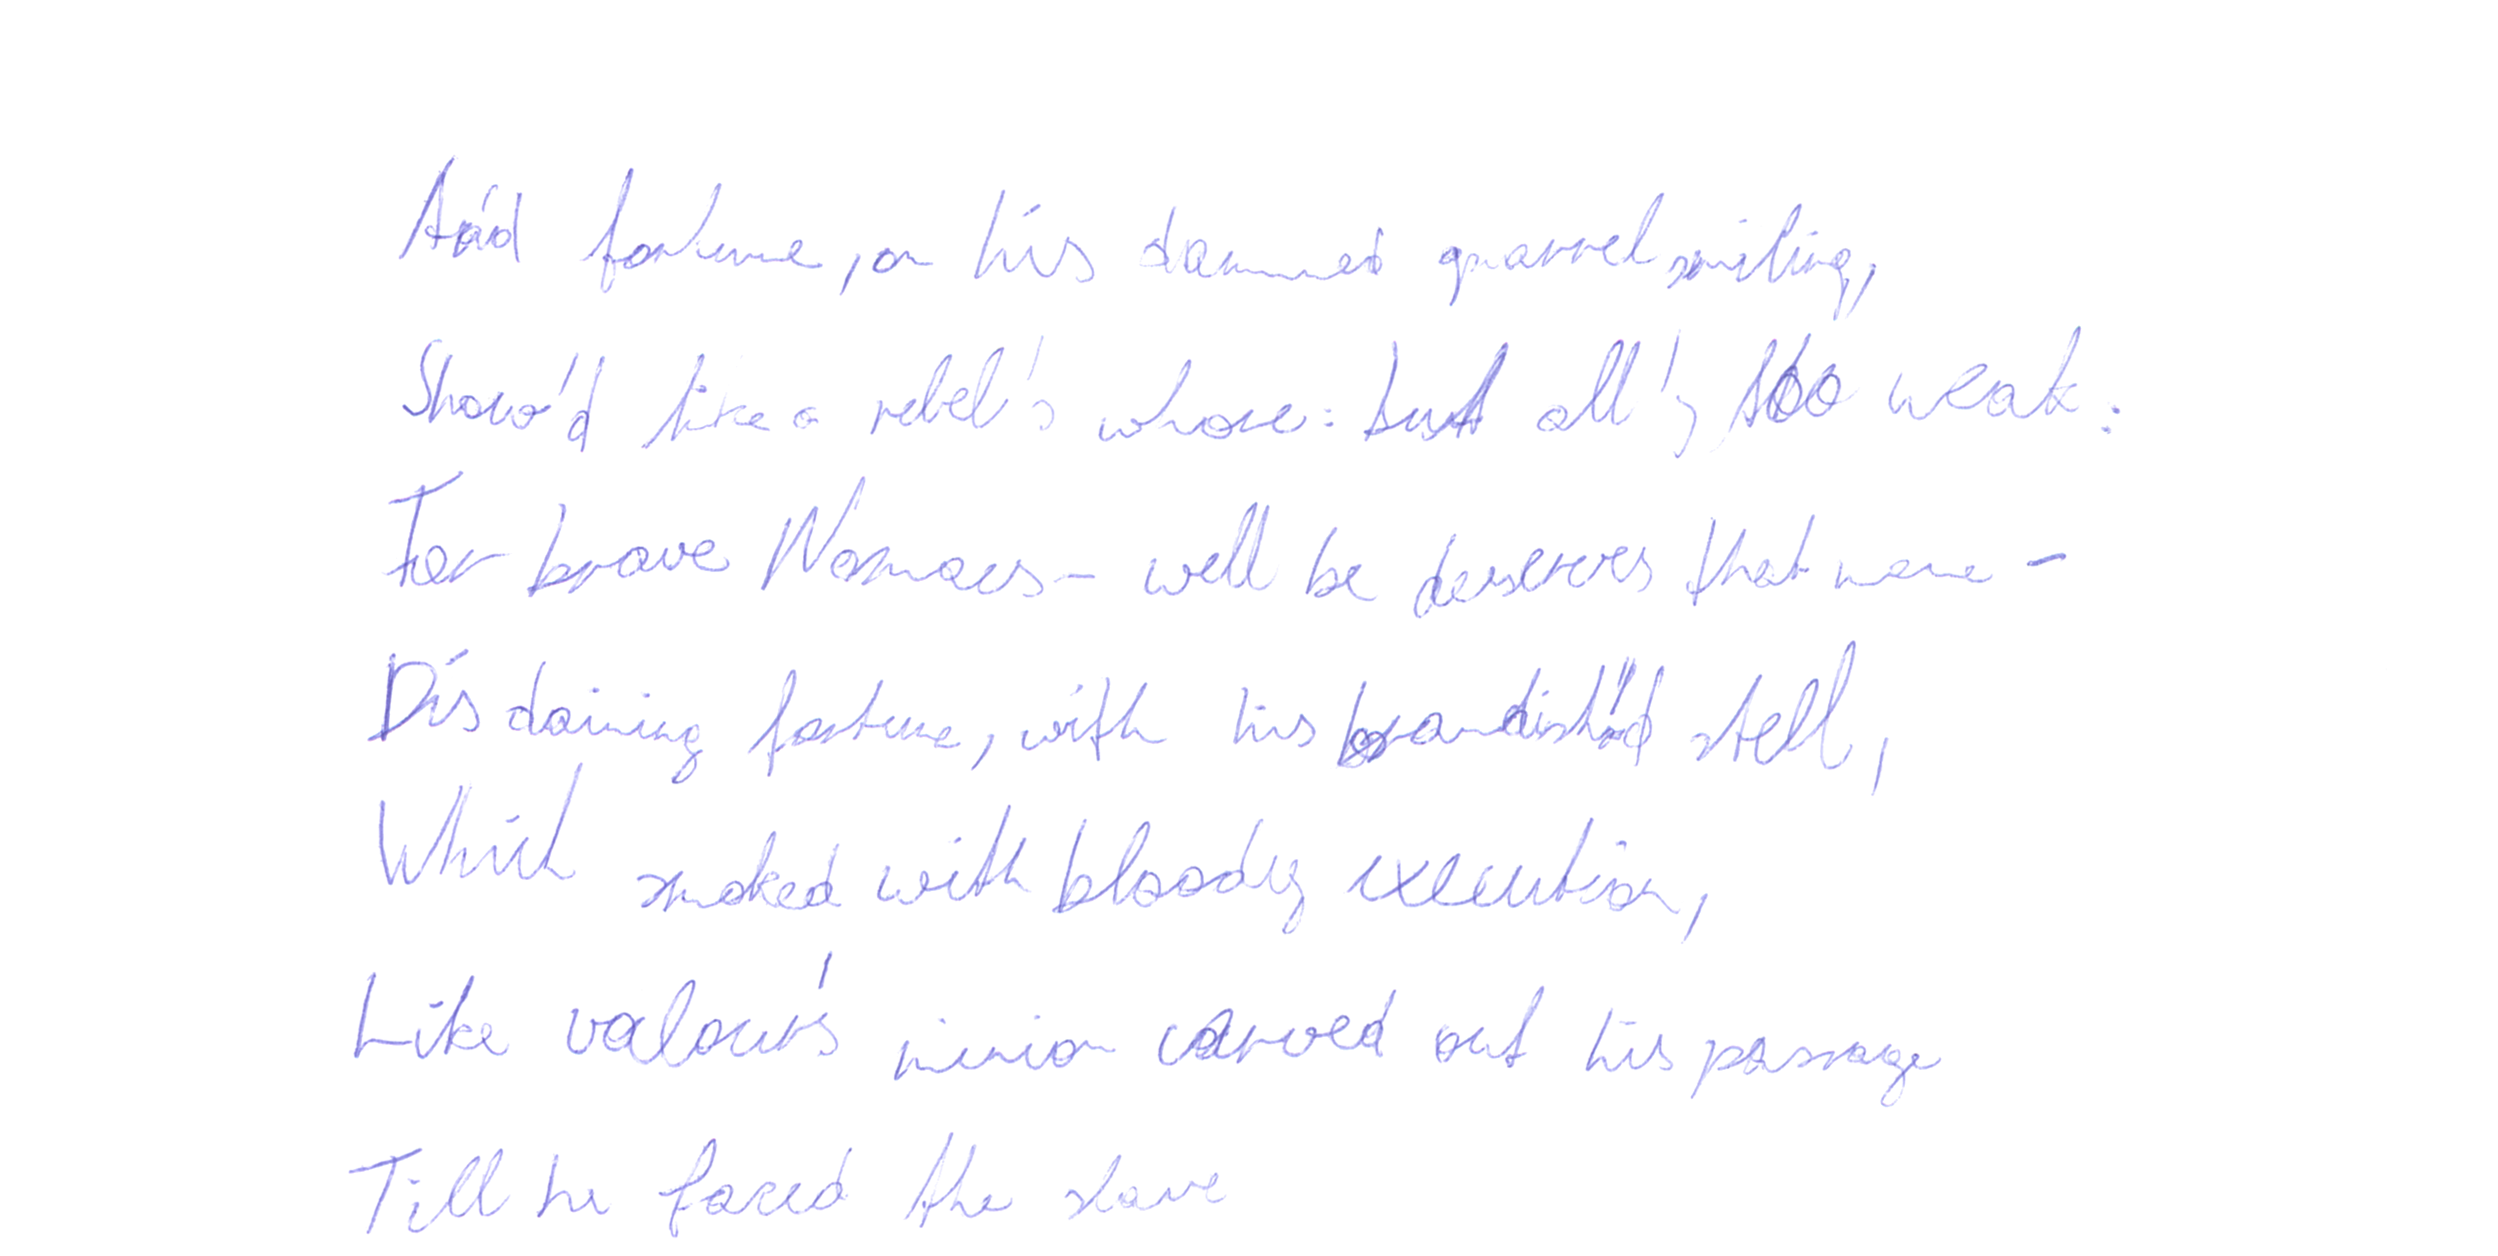 And fortune, on his damned quarrel smiling,
Show'd like a rebel's whore: but all's too weak:
For brave Nomaes - well he deserves that name -
Disdaining fortune, with his brandish'd steel,
Which smoked with bloody execution,
Like valour's minion carved out his passage
Till he faced the slave